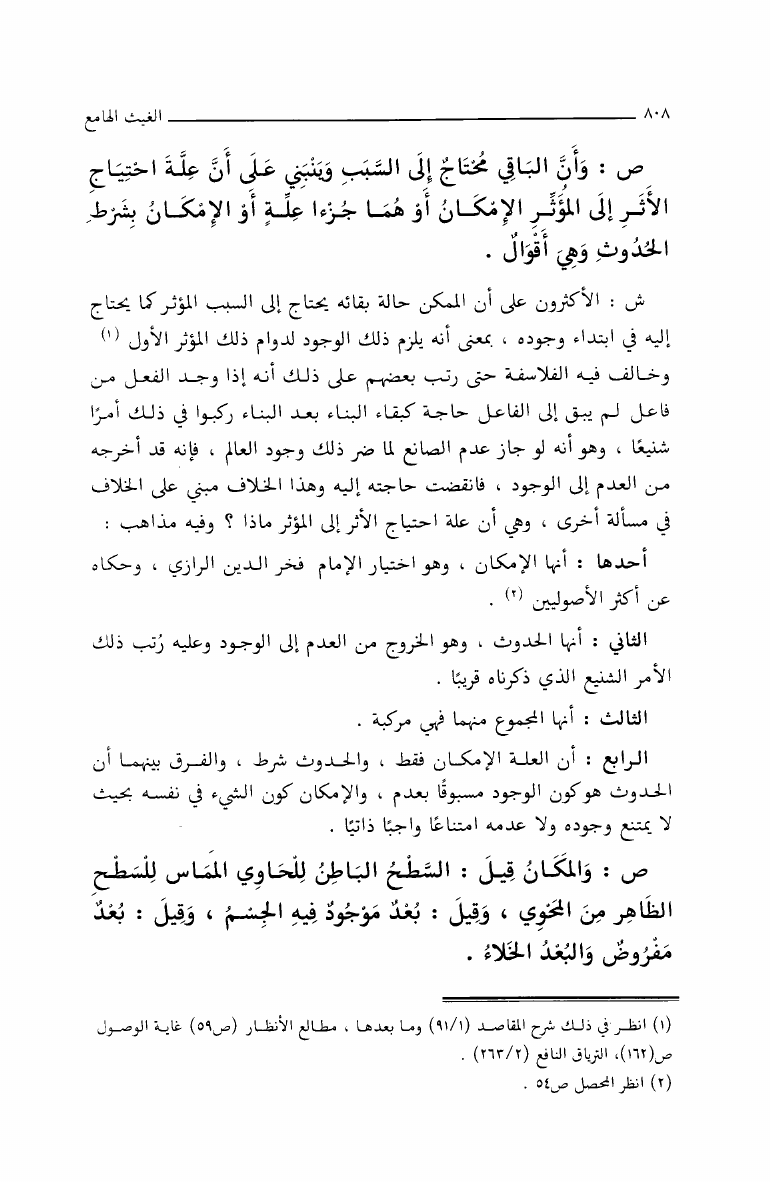 ٨٠٨ الغيث الهامع
ص : وَأَنَّ البَاقِي مُحْتَاجٌ إِلَى السَّبَبِ وَيَنْبَنِي عَلَى أَنَّ عِلَّةَ احْتِيَاجِ
الأَثَرِ إِلَى المُؤَثِّرِ الإِمْكَانُ أَوْ هُمَا جُزْءا عِلَّةٍ أَوْ الإِمْكَانُ بِشَرْطِ
الحُدُوثِ وَهِيَ أَقْوَالٌ .
ش : الأكثرون على أن الممكن حالة بقائه يحتاج إلى السبب المؤثر كما يحتاج
إليه في ابتداء وجوده ، بمعنى أنه يلزم ذلك الوجود لدوام ذلك المؤثر الأول (١)
وخالف فيه الفلاسفة حتى رتب بعضهم على ذلك أنه إذا وجد الفعل من
فاعل لم يبق إلى الفاعل حاجة كبقاء البناء بعد البناء ركبوا في ذلك أمرًا
شنيعًا ، وهو أنه لو جاز عدم الصانع لما ضر ذلك وجود العالم ، فإنه قد أخرجه
من العدم إلى الوجود ، فانقضت حاجته إليه وهذا الخلاف مبني على الخلاف
في مسألة أخرى ، وهي أن علة احتياج الأثر إلى المؤثر ماذا ؟ وفيه مذاهب :
أحدها : أنها الإمكان ، وهو اختيار الإمام فخر الدين الرازي ، وحكاه
عن أكثر الأصوليين (٢) .
الثاني : أنها الحدوث ، وهو الخروج من العدم إلى الوجود وعليه رُتب ذلك
الأمر الشنيع الذي ذكرناه قريبًا .
الثالث : أنها المجموع منهما فهي مركبة .
الرابع : أن العلة الإمكان فقط ، والحدوث شرط ، والفرق بينهما أن
الحدوث هو كون الوجود مسبوقًا بعدم ، والإمكان كون الشيء في نفسه بحيث
لا يمتنع وجوده ولا عدمه امتناعًا واجبًا ذاتيًا .
ص : وَالمَكَانُ قِيلَ : السَّطْحُ البَاطِنُ لِلْحَاوِي المَمَاس لِلْسَطْحِ
الظَاهِرِ مِنَ المَحْوِي ، وَقِيلَ : بُعْدٌ مَوْجُودٌ فِيهِ الجِسْمُ ، وَقِيلَ : بُعْدٌ
مَفْرُوضٌ وَالبُعْدُ الخَلَاءُ .
(١) انظر في ذلك شرح المقاصد (٩١/١) وما بعدها ، مطالع الأنظار (ص٥٩) غاية الوصول
ص(١٦٢)، الترياق النافع (٢٦٣/٢) .
(٢) انظر المحصل ص٥٤ .